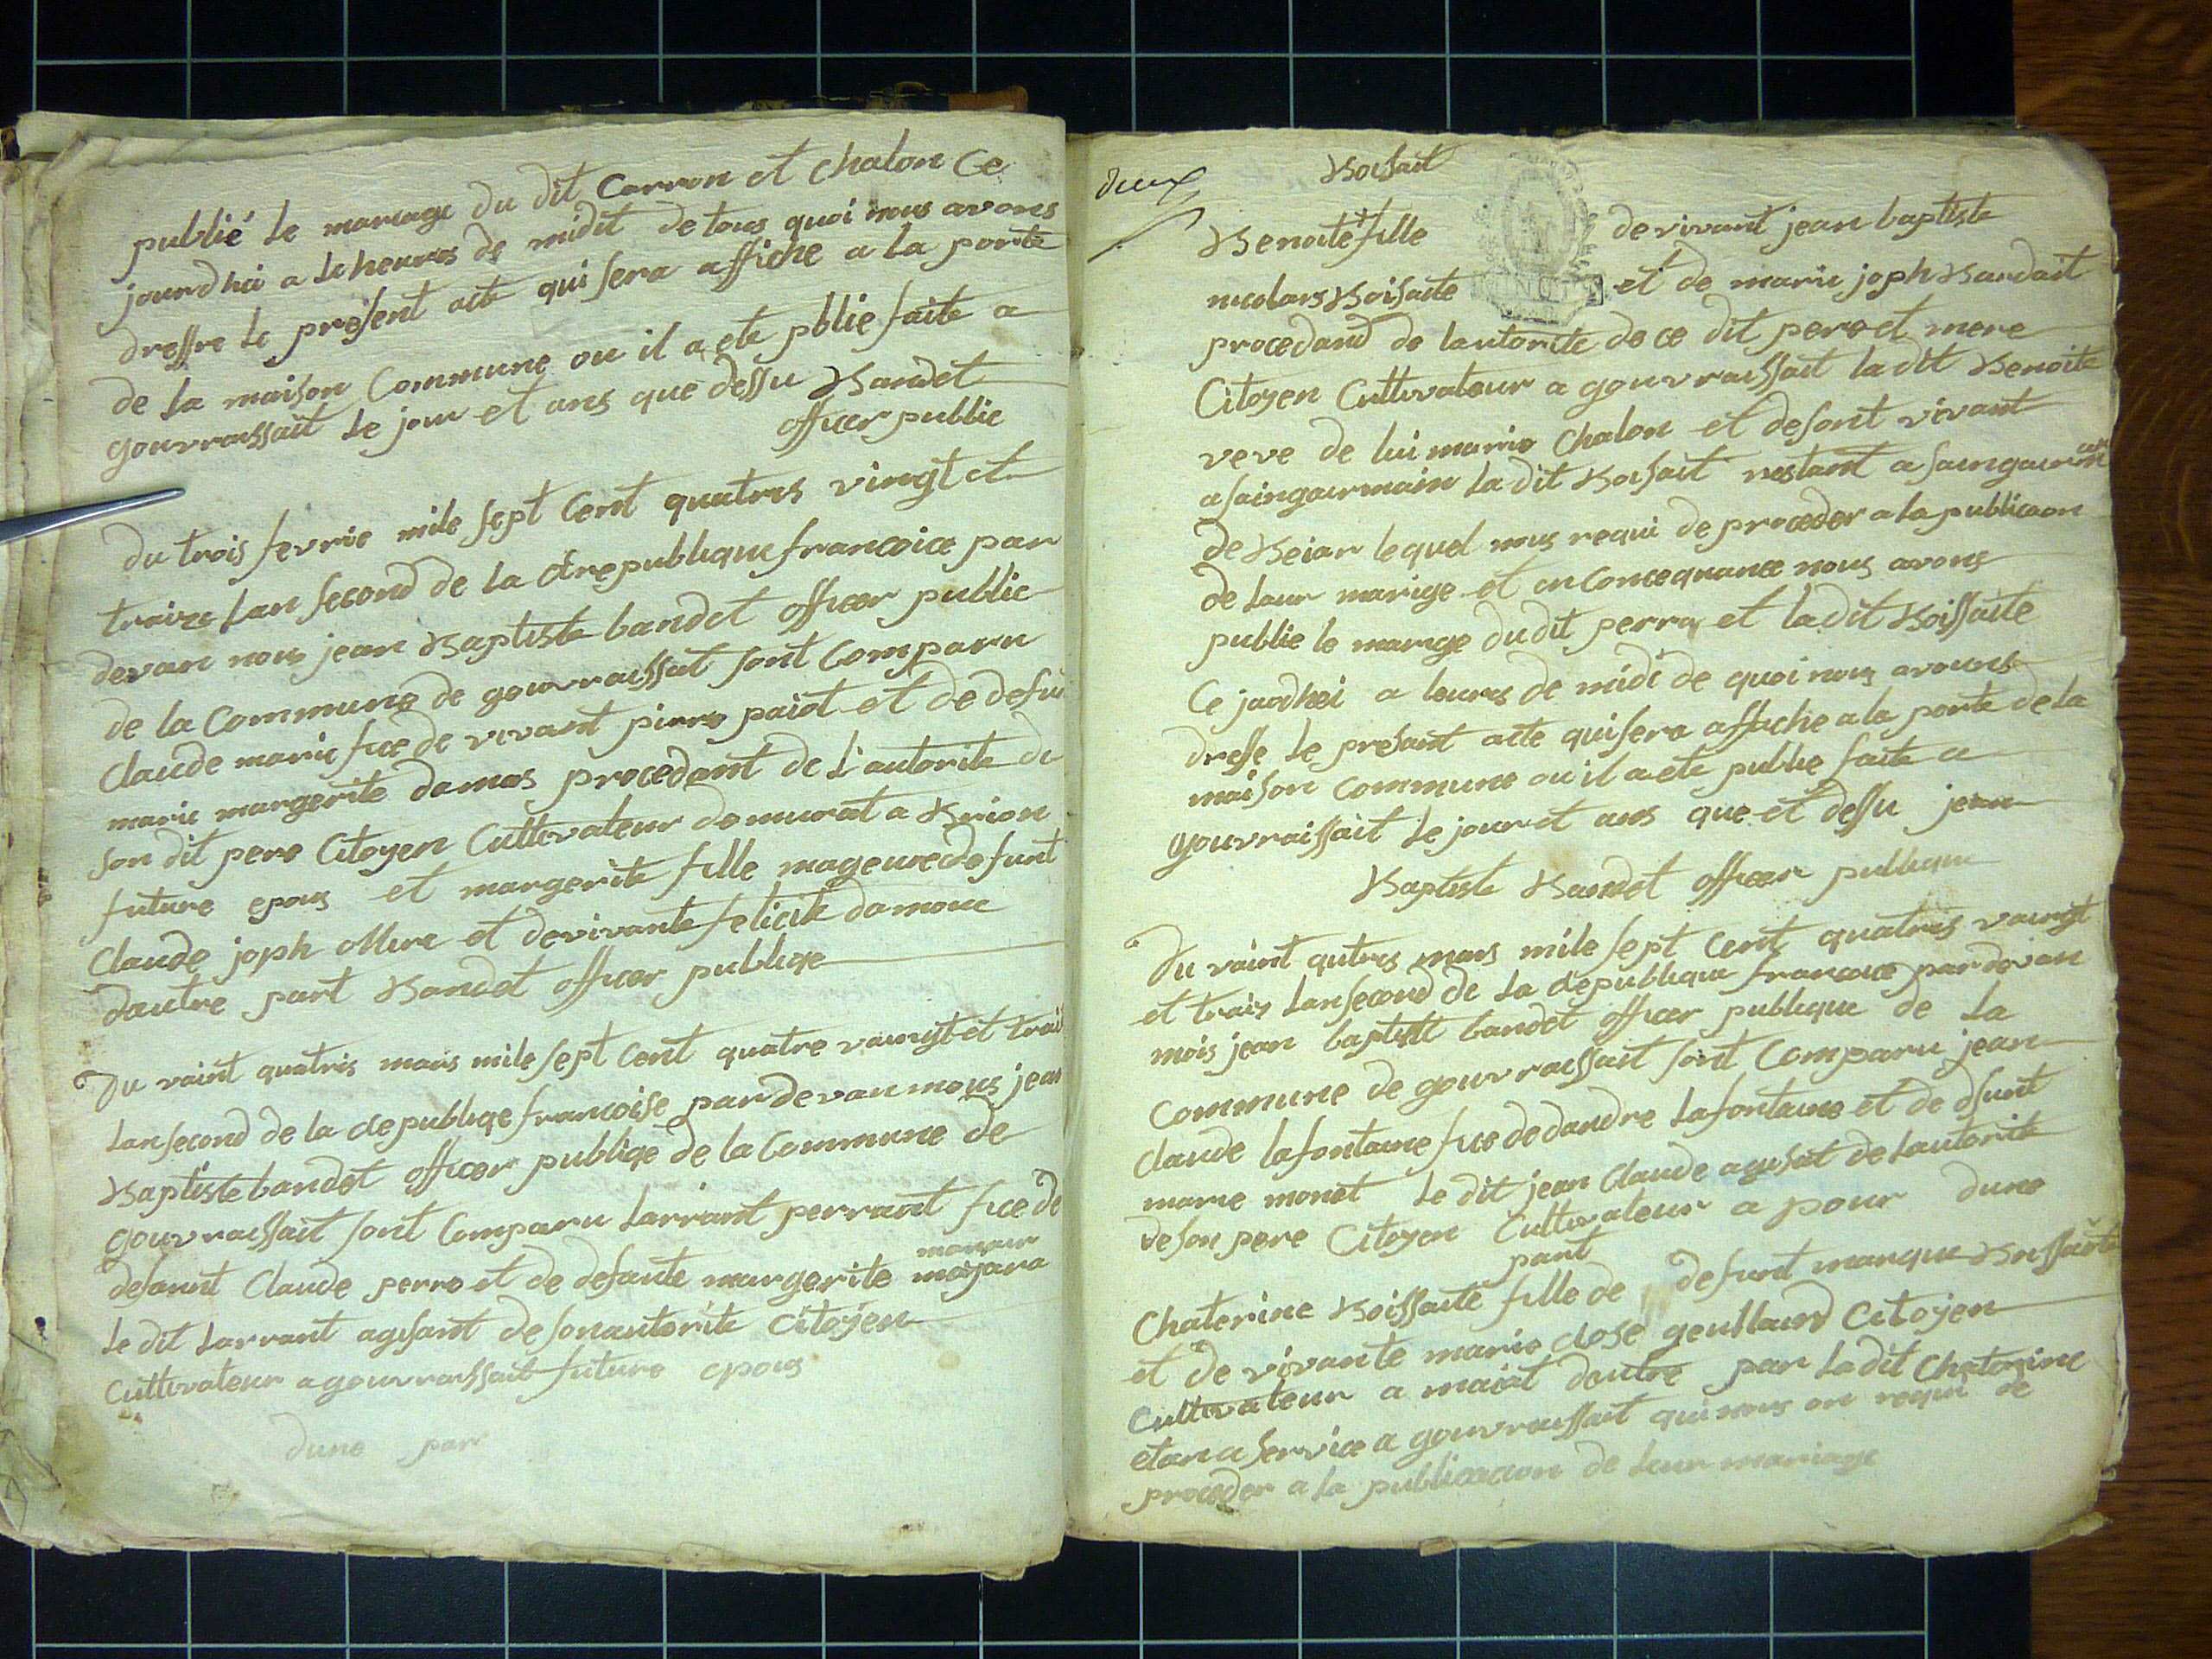 publié le mariage du dit Carron et chalon Ce
jourdhui a le heures de midit de tous quoi nous avons
dressre le présent acte qui sera affiche a la porte
de la maison Commune ou il a ete pblie faite a
gouvraissait le jour et ans que dessu Bandet
officer public
du trois fevrie mile sept Cent quatres vingt et
traize lan second de la republique francoice par
devan nous jean Baptiste bandet officer public
de la Commune de gouvraissait sont Comparu
Claude marie fice de vivant pierre paiot et de defu
marie margerite damas procedant de l'autorite de
son dit pere Citoyen Cultivateur demurat a Brion
future epous et margerite fille mageure defunt
Claude joph et devivante felicite damouce
dautre part Bandet officer publiqe
Du vaint quatris mars mile sept Cent quatre vaingt et trais
lan second de la depubliqe francoise pardevan nous jean
Baptiste bandet officer publiqe de la Commune de
gouvraissait sont Comparu Larrant perraut fice de
defunt Claude perro et de defante margerite majara
Le dit Larrant agisant de son autorite Citoyen
Cultivateur a gouvraissait future epous
dune par
deux
Boisait
Benoite fille de vivant jean baptiste
nicolas Boisaite et de marie joph Bandait
procedand de lautorite de ce dit pere et mere
Citoyen Cultivateur a gouvraissait la dit Benoite
veve de lui marie Chalon et desont vivant
a saingairmain la dit Boisait restant a saingairmain
de Beiar lequel nous requi de proceder a la publicaon
de laur marige et en Concequance nous avons
publie le marige dudit perra et la dit Boissaite
Ce jaudhei a leures de midi de quoi nous avouns
dresse le presant acte qui sera affiche a la porte de la
maison Commune ou il a ete publie faite a
gouvraissait le jour et ans que et dessu jean
Baptiste Bandet officer publique
Du vaint qutres mars mile sept Cent quatris vaingt
et trais lan second de la depublique francoice pardevan
mois jean baptistt bandet officer publique de la
Commune de gouvraissait sont Comparu jean
Claude lafontaine fice de dandre Lafontaine et de dfunt
marie monet Le dit jean Claude agisat de lautorite
de son pere Citoyen Cultivateur a pour dune
part
Chaterine Boissaite fille de defunt marque Boissaite
et de vivante marie close geullaud Citoyen
Cultivateur a maiat dautre par ladit Chaterine
etan a service a gouvraissait qui nous on requi de
proceder a la publicacion de leur mariage